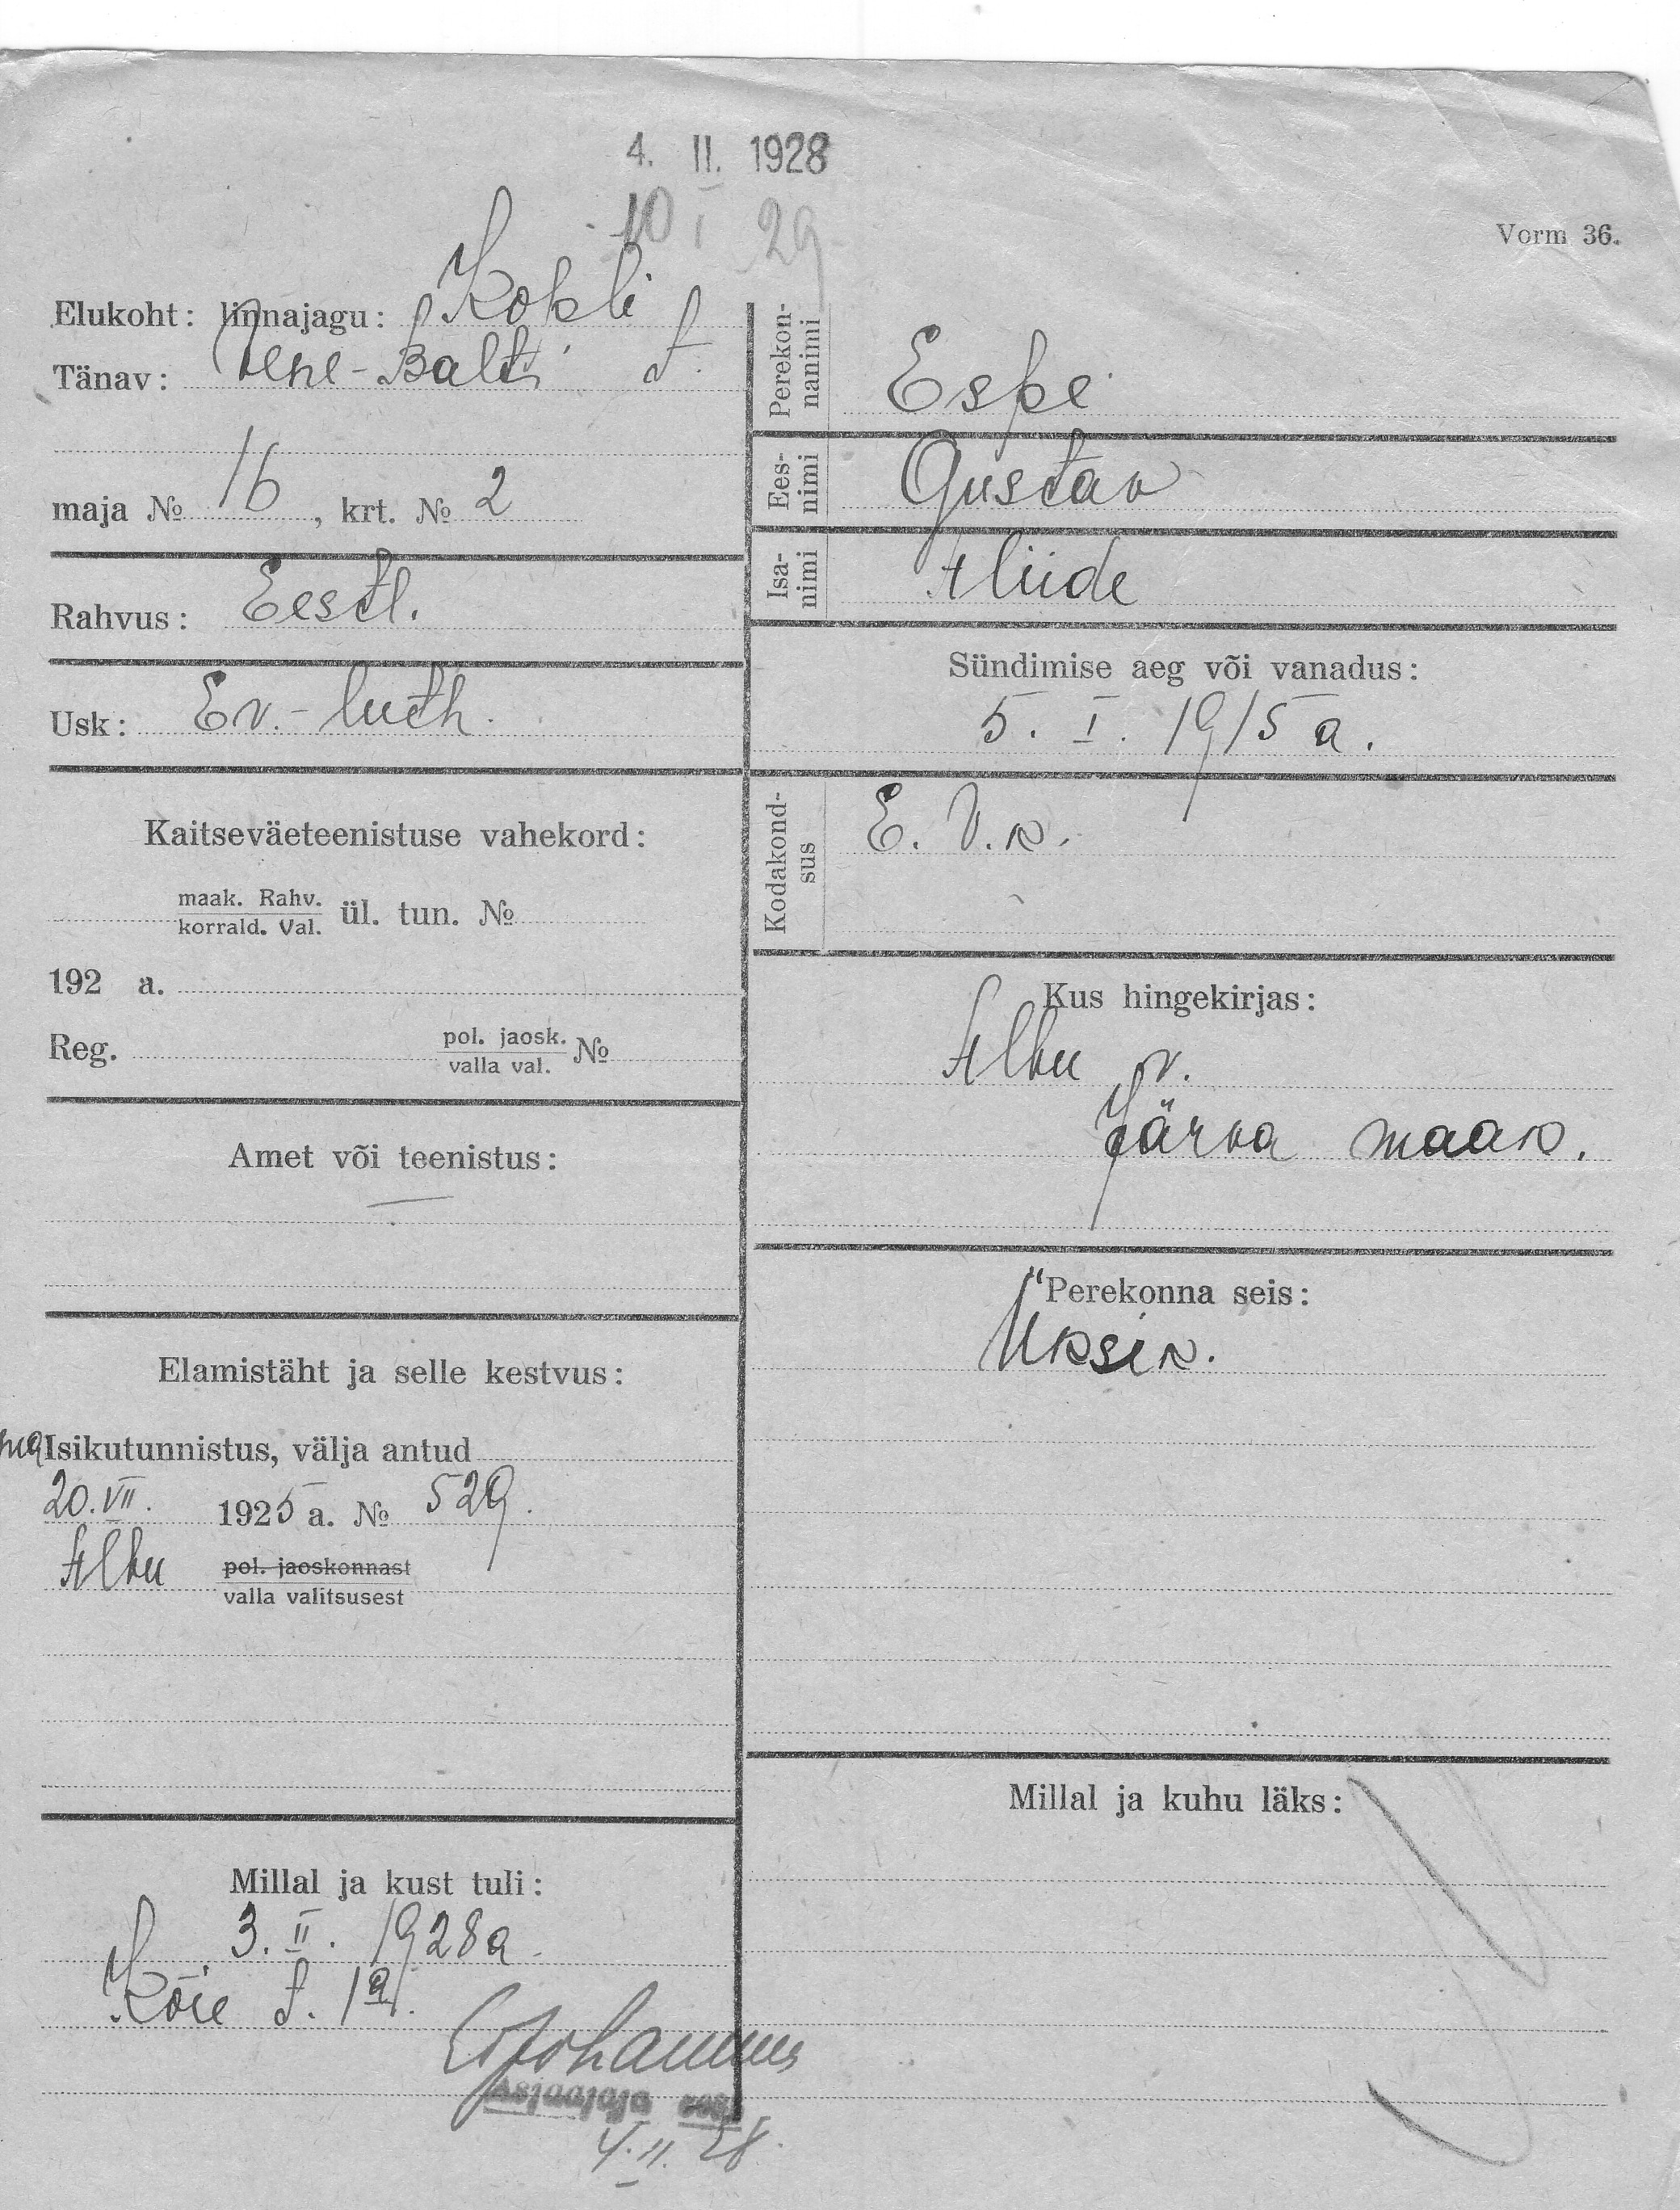 4. II. 1928
10 I 29
Vorm 36.
Elukoht: linnajagu: Kopli
Tänav: Vene-Balti t.
maja № 16, krt. № 2
Rahvus: Eestl.
Usk: Ev.-luth.
Kaitseväeteenistuse vahekord:
maak. Rahv.
korrald. Val. ül. tun. №
192 a.
Reg. pol. jaosk.
valla val. №
Amet või teenistus:
—
Elamistäht ja selle kestvus:
Isikutunnistus, välja antud
20. VII. 1925 a. № 529.
Albu pol. jaoskonnast
valla valitsusest
Millal ja kust tuli:
3. II. 1928 a.
Köie t. 1a.
Johannus
4. II. 28.
Perekon-
nanimi Espe
Ees-
nimi Gustav
Isa-
nimi Aliide
Sündimise aeg või vanadus:
5. I. 1915 a.
Kodakond-
sus E. V. k.
Kus hingekirjas:
Albu v.
Järva maak.
Perekonna seis:
Üksik.
Millal ja kuhu läks: